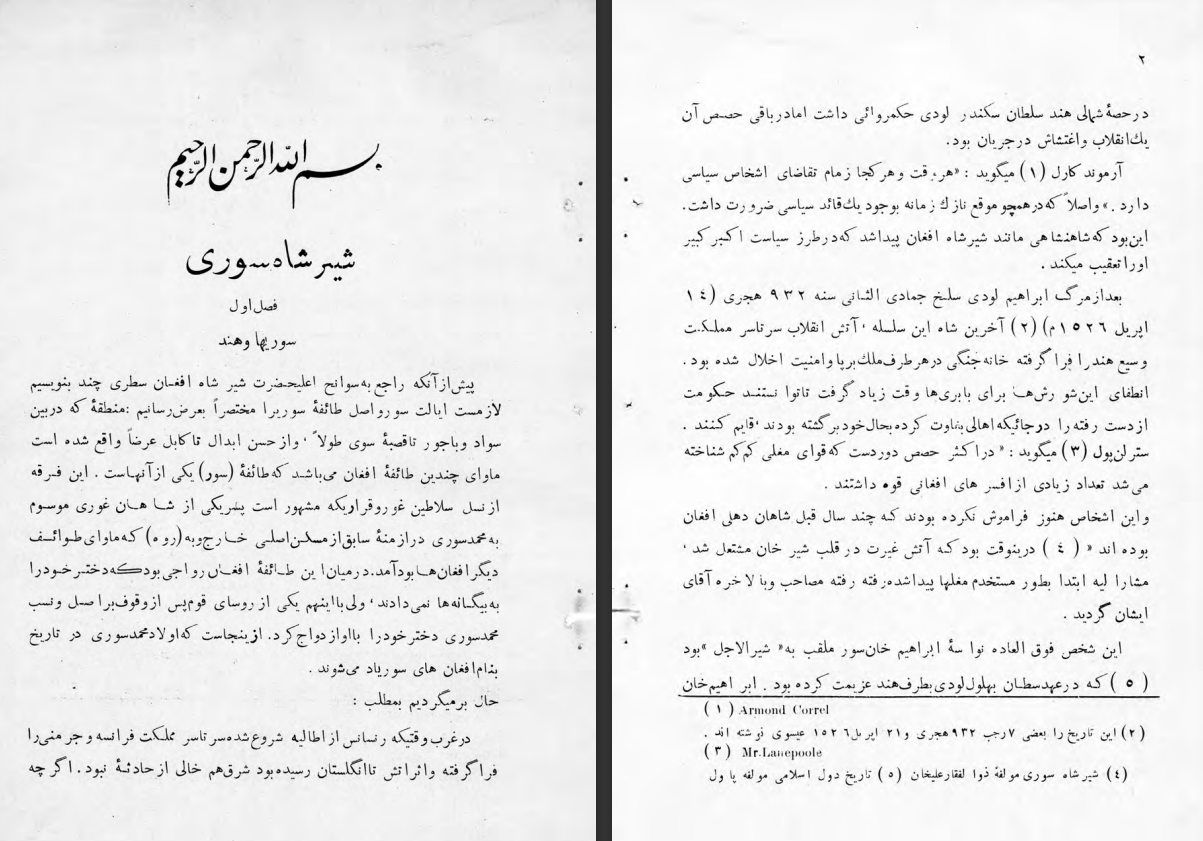 بسم الله الرحمن الرحيم
شیر شاه سوری
فصل اول
سوریها وهند
پیش از آنکه راجع به سوانح اعلیحضرت شیر شاه افغان سطری چند بنویسیم
لازمست ایالت سور و اصل طائفهٔ سوریرا مختصراً بعرض رسانیم : منطقهٔ که دربین
سواد وباجور تاقصبهٔ سوی طولاً ، واز حسن ابدال تاکابل عرضاً واقع شده است
ماوای چندین طائفهٔ افغان می‌باشد که طائفهٔ (سور) یکی از آنهاست . این فرقه
از نسل سلاطین غور وقراریکه مشهور است پسریکی از شاهان غوری موسوم
به محمد سوری در ازمنهٔ سابق از مسکن اصلی خارج وبه (روه) که ماوای طوائف
دیگر افغان‌ها بود آمد. درمیان این طائفهٔ افغان رواجی بود که دختر خود را
به بیگانه‌ها نمی دادند ، ولی با اینهم یکی از روسای قوم پس از وقوف بر اصل ونسب
محمد سوری دختر خود را بااو ازدواج کرد. ازینجاست که اولاد محمد سوری در تاریخ
بنام افغان های سور یاد می‌شوند .
حال بر میگردیم بمطلب :
درغرب وقتیکه رنسانس از اطالیه شروع شده سر تاسر مملکت فرانسه وجرمنی را
فراگرفته واثراتش تاانگلستان رسیده بود شرق هم خالی از حادثهٔ نبود . اگر چه
٢
درحصهٔ شمالی هند سلطان سکندر لودی حکمروائی داشت امادر باقی حصص آن
یک انقلاب واغتشاش درجریان بود.
آرموند کارل (١) میگوید : «هروقت وهر کجا زمام تقاضای اشخاص سیاسی
دارد .» واصلاً که در همچو موقع نازک زمانه بوجود یک قائد سیاسی ضرورت داشت.
این بود که شاهنشاهی مانند شیر شاه افغان پیداشد که درطرز سیاست اکبر کبیر
اورا تعقیب میکند .
بعد از مرگ ابراهیم لودی سلخ جمادی الثانی سنه ٩٣٢ هجری (١٤
اپریل ١٥٢٦م) (٢) آخرین شاه این سلسله ، آتش انقلاب سرتاسر مملکت
وسیع هند را فرا گرفته خانه جنگی درهر طرف ملک برپا وامنیت اخلال شده بود .
انطفای این شورش‌ها برای بابری‌ها وقت زیاد گرفت تاتوا نستند حکومت
از دست رفته را درجائیکه اهالی بغاوت کرده بحال خود برگشته بودند ، قایم کنند .
ستر لن پول (٣) میگوید : «در اکثر حصص دوردست که قوای مغلی کم کم شناخته
می شد تعداد زیادی از افسر های افغانی قوه داشتند .
واین اشخاص هنوز فراموش نکرده بودند که چند سال قبل شاهان دهلی افغان
بوده اند » (٤) درینوقت بود که آتش غیرت در قلب شیر خان مشتعل شد ،
مشارالیه ابتدا بطور مستخدم مغلها پیداشده رفته رفته مصاحب وبالاخره آقای
ایشان گردید .
این شخص فوق العاده نواسهٔ ابراهیم خان سور ملقب به «شیرالاجل» بود
(٥) که درعهد سلطان بهلول لودی بطرف هند عزیمت کرده بود . ابراهیم خان
(١) Armond Correl
(٢) این تاریخ را بعضی ٧ رجب ٩٣٢ هجری و ٢١ اپریل ١٥٢٦ عیسوی نوشته اند .
(٣) Mr.Lanepoole
(٤) شیر شاه سوری مولفهٔ ذوالفقار علیخان (٥) تاریخ دول اسلامی مولفه پا ول